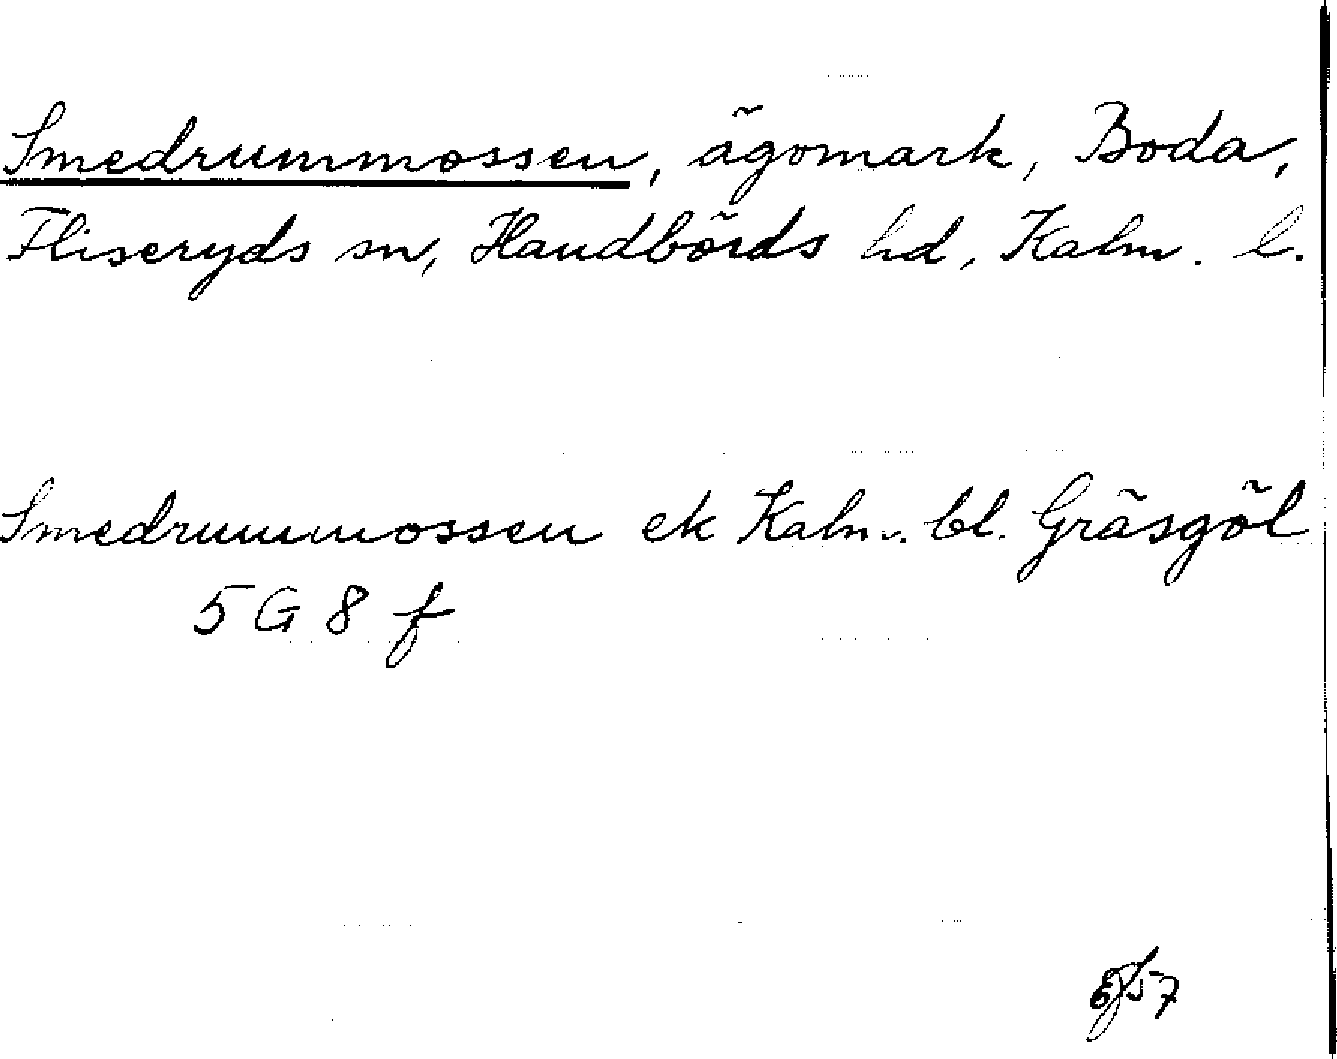 Smedrummossen, ägomark, Boda,
Fliseryds sn, Handbörds hd, Kalm. l.
Smedrummossen ek Kalm. bl. Gräsgöl
5 G 8 f